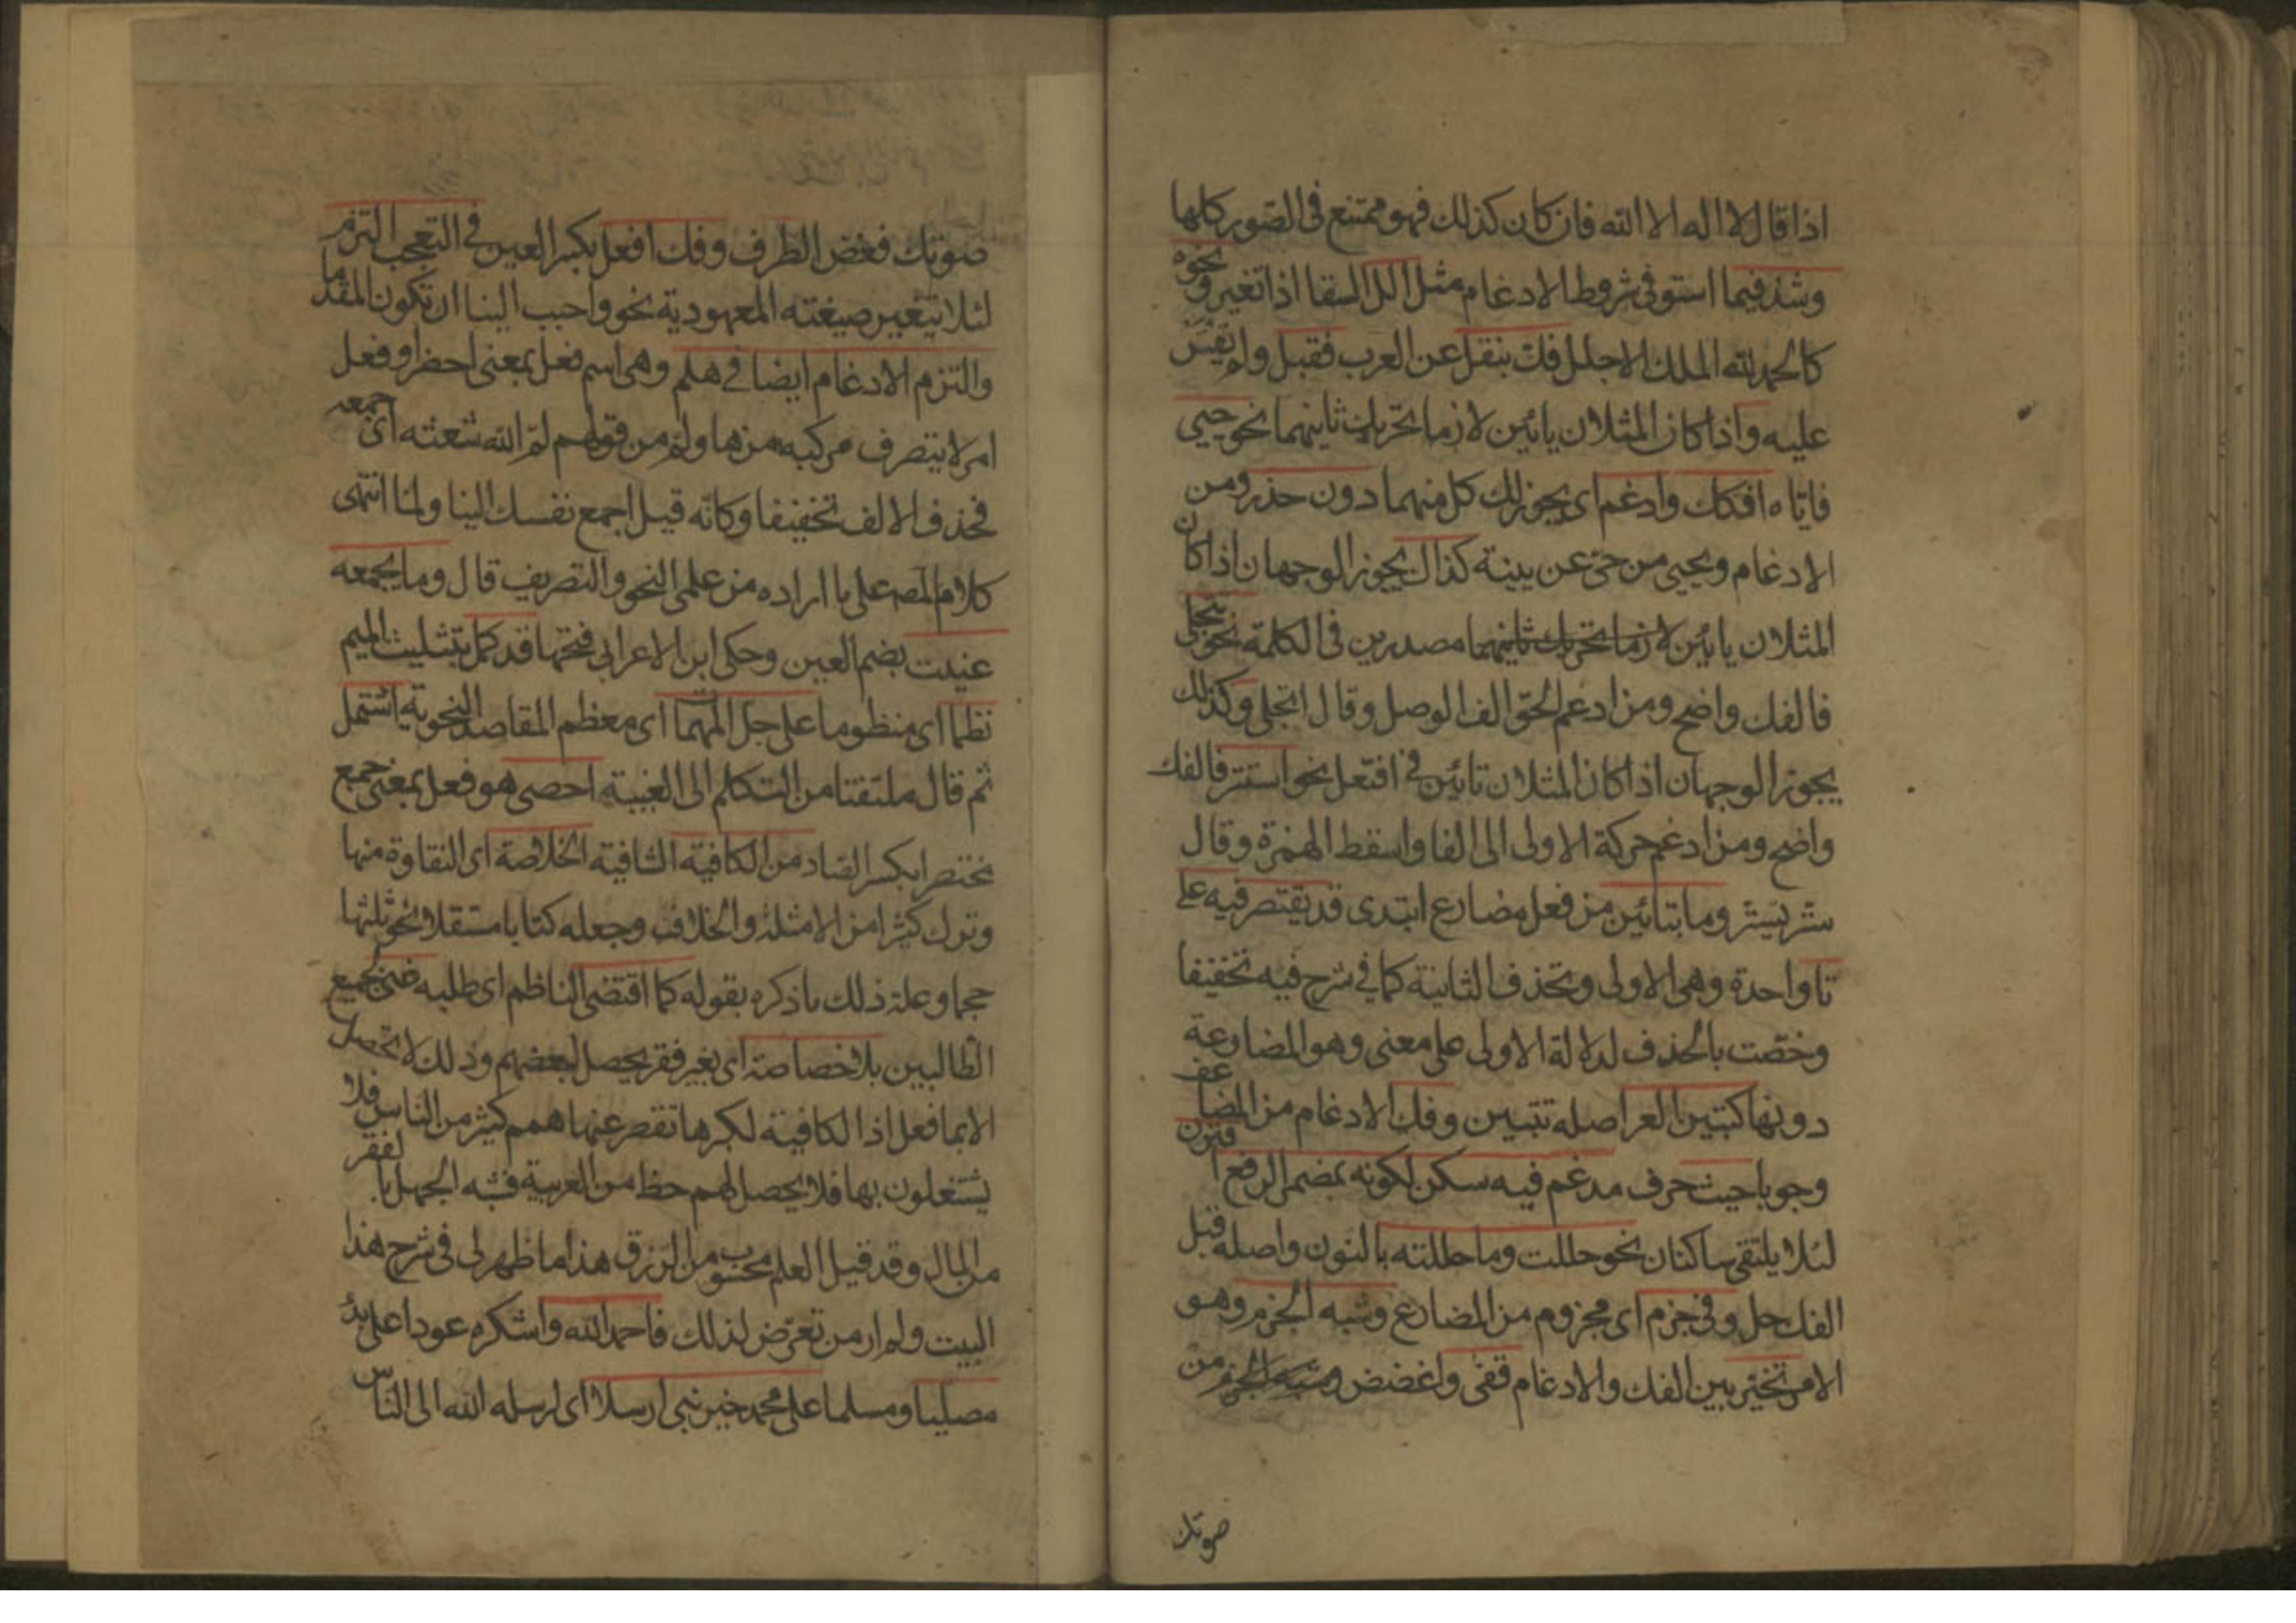 اذا قال لا اله الا الله فان كان كذلك فهو ممتنع فى الصور كلها
وشذ فيما استوفى شروط الادغام مثل الل السقا اذا تغير ونحوه
كالحمد لله الملك الاجلل فك بنقل عن العرب فقبل ولم يقس
عليه واذا كان المثلان يائين لازما تحريك ثانيهما نحو حيى
افكك وادغم اى يجوز لك كل منهما دون حذر ومن
الادغام ويحيى من حى عن بينة كذاك يجوز الوجهان اذا كان
المثلان يائين لازما تحريك ثانيهما مصدرين فى الكلمة نحو تتجلى
فالفك واضح ومن ادغم الحق الف الوصل وقال اتجلى وكذلك
يجوز الوجهان اذا كان المثلان تائين فى افتعل نحو استتر فالفك
واضح ومن ادغم حركة الاولى الى الفا واسقط الهمزة وقال
ستر يستر وما بتائين من فعل مضارع ابتدى قد يقتصر فيه على
تا واحدة وهى الاولى وتحذف الثانية كما فى شرح فيه تخفيفا
وخصت بالحذف لدلالة الاولى على معنى وهو المضارعة
دونها كتبين العبر اصله تتبين وفك الادغام من المضاعف
وجوبا حيث حرف مدغم فيه سكن لكونه بمضمر الرفع اقترن
لئلا يلتقى ساكنان نحو حللت وما حللته بالنون واصله قبل
الفك حل وفى جزم اى مجزوم من المضارع وشبه الجزم وهو
الامر تخيير بين الفك والادغام قفى واغضض وشبه الجزم من
صوتك
صوتك فغض الطرف وفك افعل بكسر العين فى التعجب التزم
لئلا يتغير صيغته المعهودية نحو واحبب الينا ان تكون المقدما
والتزم الادغام ايضا فى هلم وهى اسم فعل بمعنى احضر او فعل
امر لا يتصرف مركبه من ها ولم من قولهم لم الله شعثه اى جمعه
فحذف الالف تخفيفا وكانه قيل اجمع نفسك الينا ولما انتهى
كلام المصه على ما اراده من علمى النحو والتصريف قال وما بجمعه
عنيت بضم العين وحكى ابن الاعرابى فتحها قد كمل بتثليث الميم
نظما اى منظوما على جل المهمات اى معظم المقاصد النحوية اشتمل
ثم قال ملتفتا من التكلم الى الغيبة احصى هو فعل بمعنى جمع
مختصرا بكسر الصاد من الكافية الشافية الخلاصة اى النقاوة منها
وترك كثيرا من الامثلة والخلاف وجعله كتابا مستقلا نحو ثلثها
حجما وعلة ذلك ما ذكره بقوله كما اقتضى الناظم اى طلبه غنى لجميع
الطالبين بلا خصاصة اى بغير فقر يحصل لبعضهم وذلك لا يحصل
الا بما فعل اذ الكافية لكبرها تقصر عنها همم كثير من الناس فلا
يشتغلون بها فلا يحصل لهم حظ من العربية فشبه الجهل بالفقر
من المال وقد قيل العلم محسوب من الرزق هذا ما ظهر لى فى شرح هذا
البيت ولم ار من تعرض لذلك فاحمد الله واشكره عودا على بدء
مصليا ومسلما على محمد خير نبى ارسلا اى ارسله الله الى الناس